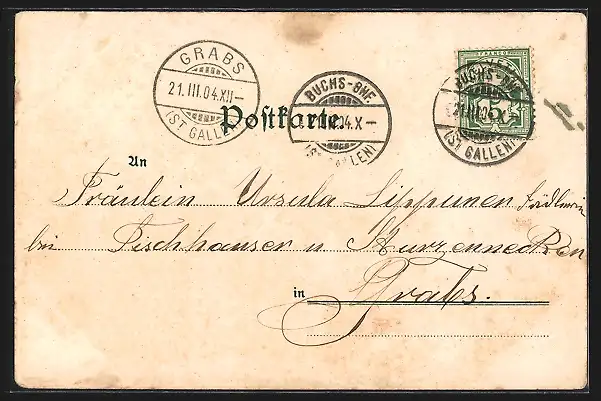 GRABS
21.III.04.XII–
(ST. GALLEN)
BUCHS-BHF.
21.III.04.X–
(ST. GALLEN)
FRANCO
BUCHS-BHF.
21.III.04.X
(ST. GALLEN)
Postkarte.
An
Fräulein Ursula Lippuner
bei Tischhauser u
in Grabs.